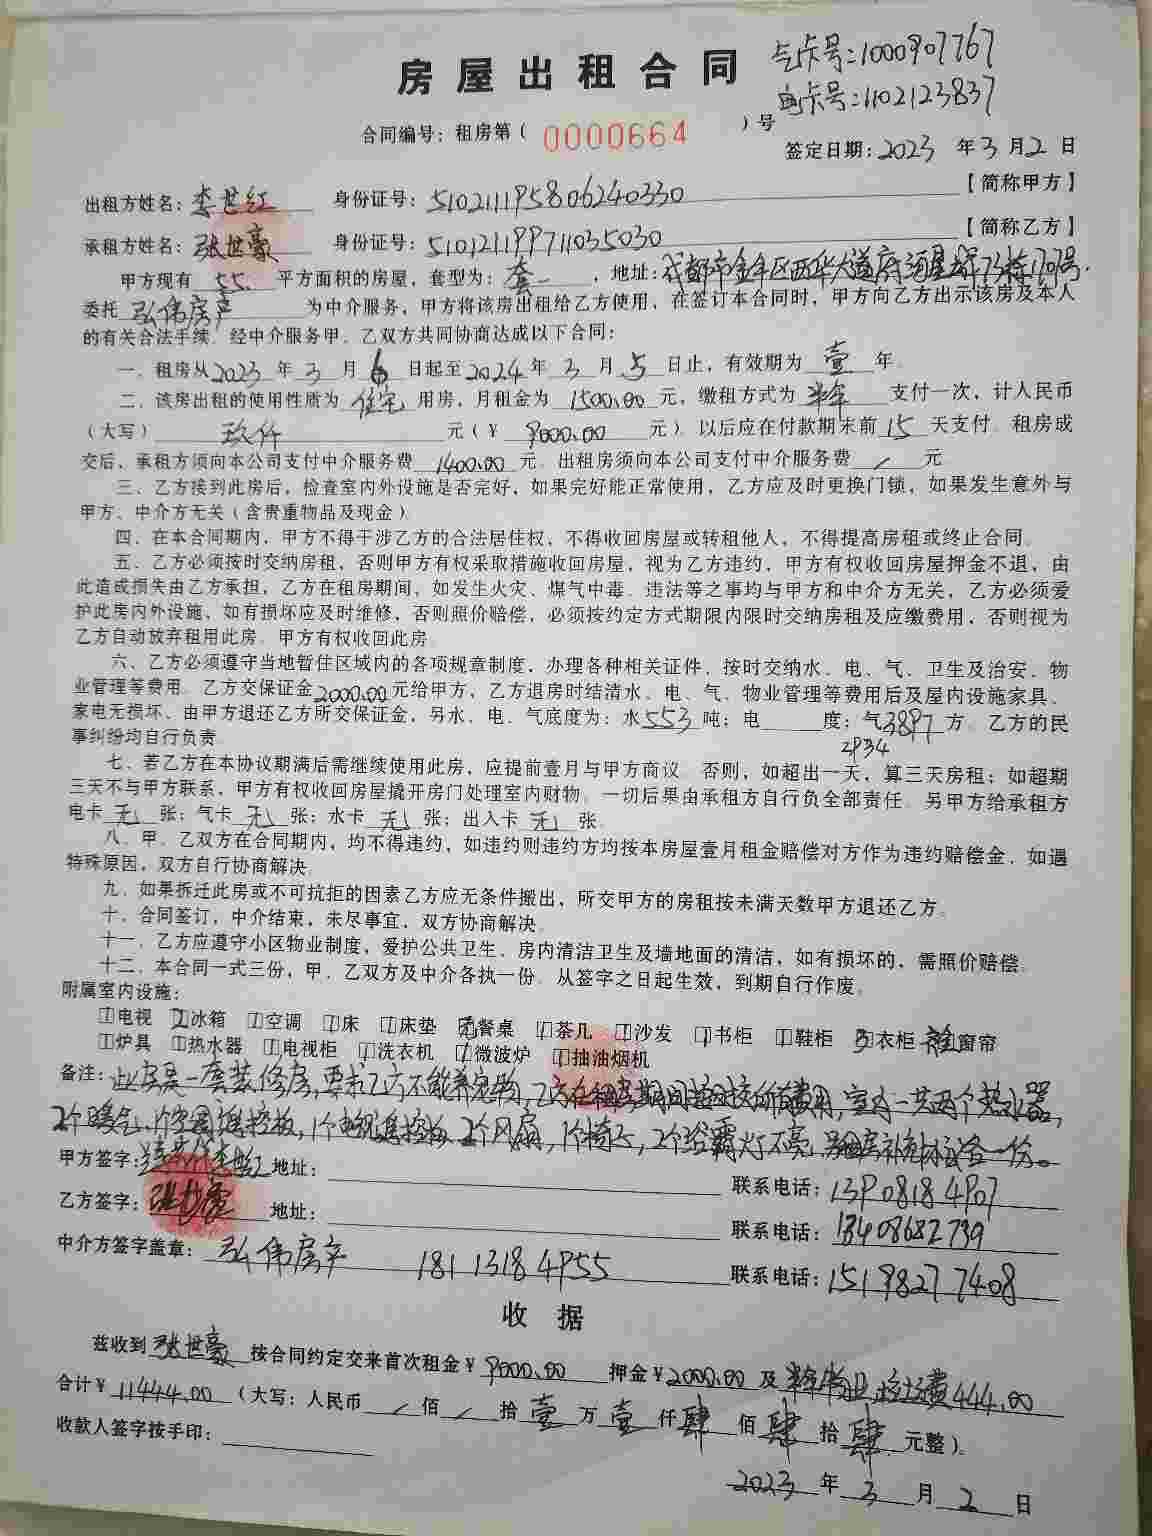 房屋出租合同
气卡号:1000907767
电卡号:1102123837
合同编号:租房第( 0000664 )号
签定日期:2023 年 3 月 2 日
出租方姓名:李世红 身份证号:510211195806240330 【简称甲方】
承租方姓名:张世豪 身份证号:510121199711035030 【简称乙方】
甲方现有 55 平方面积的房屋,套型为:套一 ,地址:成都市金牛区西华大道府河星城
委托 弘伟房产 为中介服务,甲方将该房出租给乙方使用,在签订本合同时,甲方向乙方出示该房及本人
的有关合法手续。经中介服务甲、乙双方共同协商达成以下合同:
一、租房从2023 年 3 月 6 日起至2024 年 3 月 5 日止,有效期为 壹 年。
二、该房出租的使用性质为 住宅 用房,月租金为 1500.00 元,缴租方式为 半年 支付一次,计人民币
(大写) 玖仟 元(¥ 9000.00 元)以后应在付款期末前 15 天支付。租房成
交后,承租方须向本公司支付中介服务费 1400.00 元。出租房须向本公司支付中介服务费 / 元
三、乙方接到此房后,检查室内外设施是否完好,如果完好能正常使用,乙方应及时更换门锁,如果发生意外与
甲方、中介方无关(含贵重物品及现金)
四、在本合同期内,甲方不得干涉乙方的合法居住权,不得收回房屋或转租他人,不得提高房租或终止合同。
五、乙方必须按时交纳房租,否则甲方有权采取措施收回房屋,视为乙方违约,甲方有权收回房屋押金不退,由
此造成损失由乙方承担,乙方在租房期间,如发生火灾、煤气中毒、违法等之事均与甲方和中介方无关,乙方必须爱
护此房内外设施,如有损坏应及时维修,否则照价赔偿,必须按约定方式期限内限时交纳房租及应缴费用,否则视为
乙方自动放弃租用此房。甲方有权收回此房。
六、乙方必须遵守当地暂住区域内的各项规章制度,办理各种相关证件、按时交纳水、电、气、卫生及治安、物
业管理等费用。乙方交保证金2000.00元给甲方,乙方退房时结清水、电、气、物业管理等费用后及屋内设施家具、
家电无损坏、由甲方退还乙方所交保证金,另水、电、气底度为:水553吨;电 度;气3897方。乙方的民
2934
事纠纷均自行负责
七、若乙方在本协议期满后需继续使用此房,应提前壹月与甲方商议。否则,如超出一天,算三天房租;如超期
三天不与甲方联系,甲方有权收回房屋撬开房门处理室内财物。一切后果由承租方自行负全部责任。另甲方给承租方
电卡 无 张;气卡 无 张;水卡 无 张;出入卡 无 张。
八、甲、乙双方在合同期内,均不得违约,如违约则违约方均按本房屋壹月租金赔偿对方作为违约赔偿金、如遇
特殊原因,双方自行协商解决
九、如果拆迁此房或不可抗拒的因素乙方应无条件搬出,所交甲方的房租按未满天数甲方退还乙方。
十、合同签订,中介结束,未尽事宜,双方协商解决。
十一、乙方应遵守小区物业制度,爱护公共卫生、房内清洁卫生及墙地面的清洁,如有损坏的,需照价赔偿。
十二、本合同一式三份,甲、乙双方及中介各执一份。从签字之日起生效,到期自行作废。
附属室内设施:
1电视 2冰箱 1空调 1床 1床垫 无餐桌 1茶几 1沙发 1书柜 1鞋柜 3衣柜 窗帘
1炉具 1热水器 1电视柜 1洗衣机 1微波炉 1抽油烟机
备注:此房是一套装修房,要求乙方不能养宠物,乙方在租房期间按时交所有费用,室内一共两个热水器,
2个暖气、1个空调遥控板,1个电视遥控板、2个风扇,1个椅子,2个浴霸灯不亮,
甲方签字: 李世红 地址: 联系电话:13908184907
乙方签字:张世豪 地址: 联系电话:13408682739
中介方签字盖章: 弘伟房产 18113184955 联系电话:15198277408
收 据
兹收到 张世豪 按合同约定交来首次租金¥ 9000.00 押金¥2000.00 及 半年物业 垃圾费444.00
合计¥ 11444.00 (大写:人民币 / 佰 / 拾 壹 万 壹 仟 肆 佰 肆 拾 肆 元整)。
收款人签字按手印:
2023 年 3 月 2 日